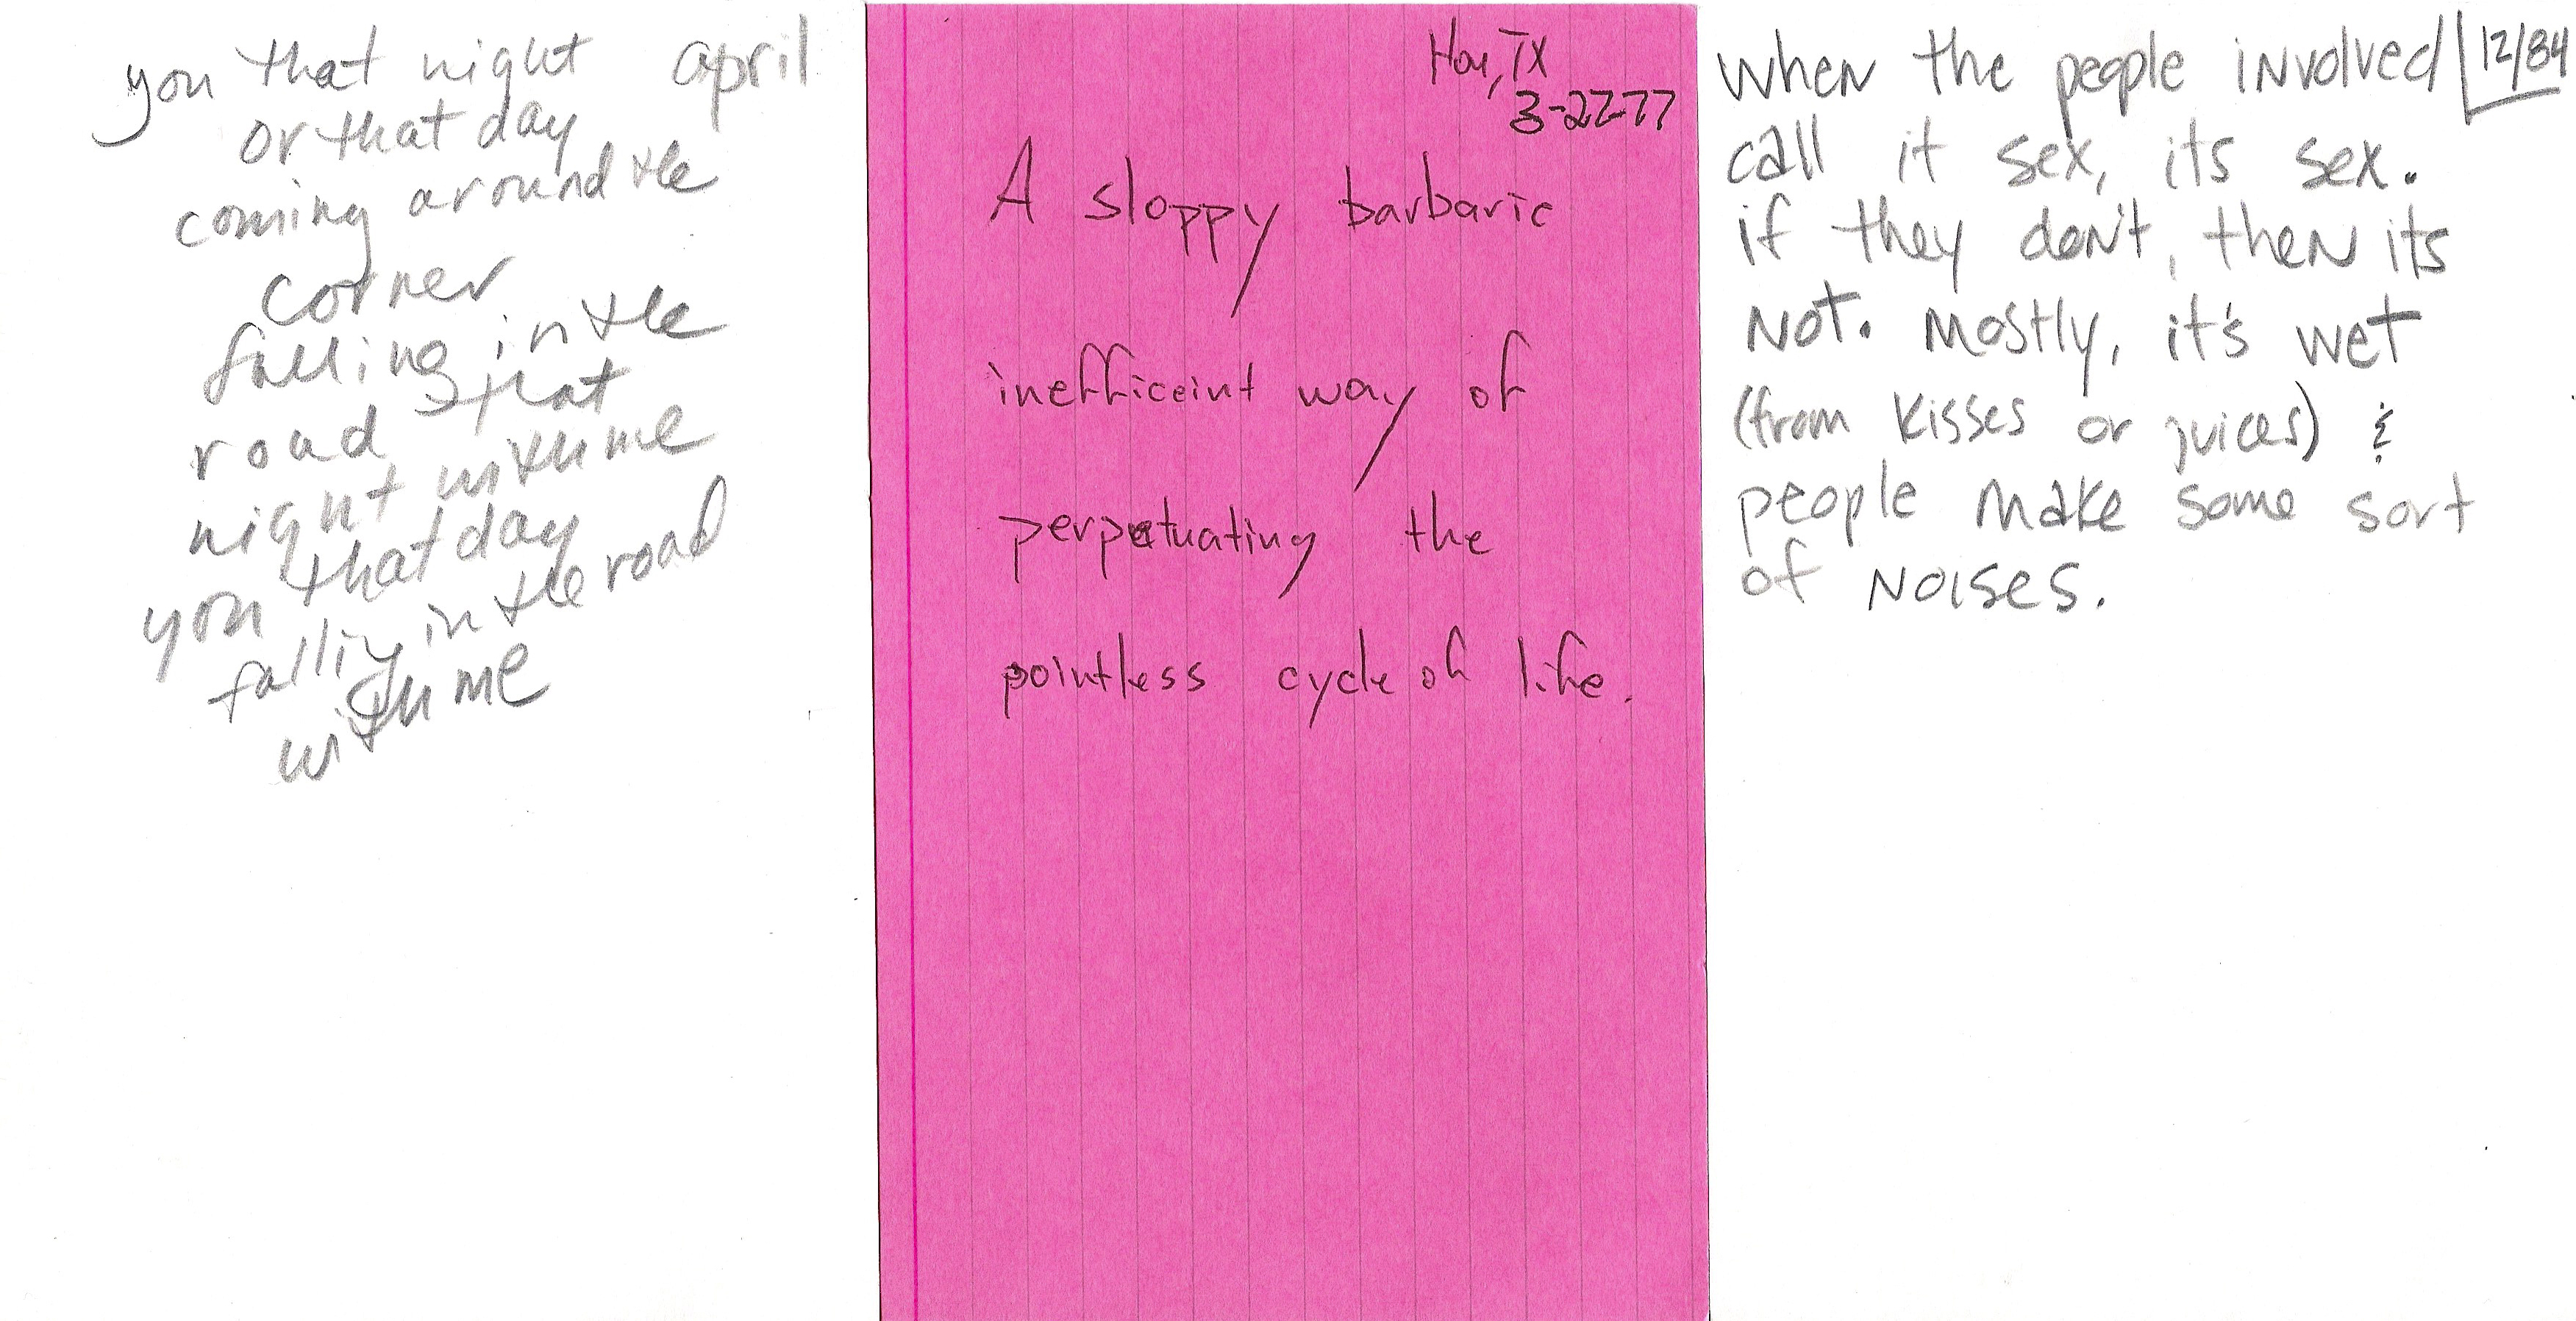 you that night april
or that day
coming around the
corner
falling in the
road that
night with me
you that day
falling in the road
with me
Hou, TX
3-27-77
A sloppy barbaric
inefficeint way of
perpetuating the
pointless cycle of life.
when the people involved 12/84
call it sex, its sex.
if they don't, then its
not. mostly, it's wet
(from kisses or juices) &
people make some sort
of noises.